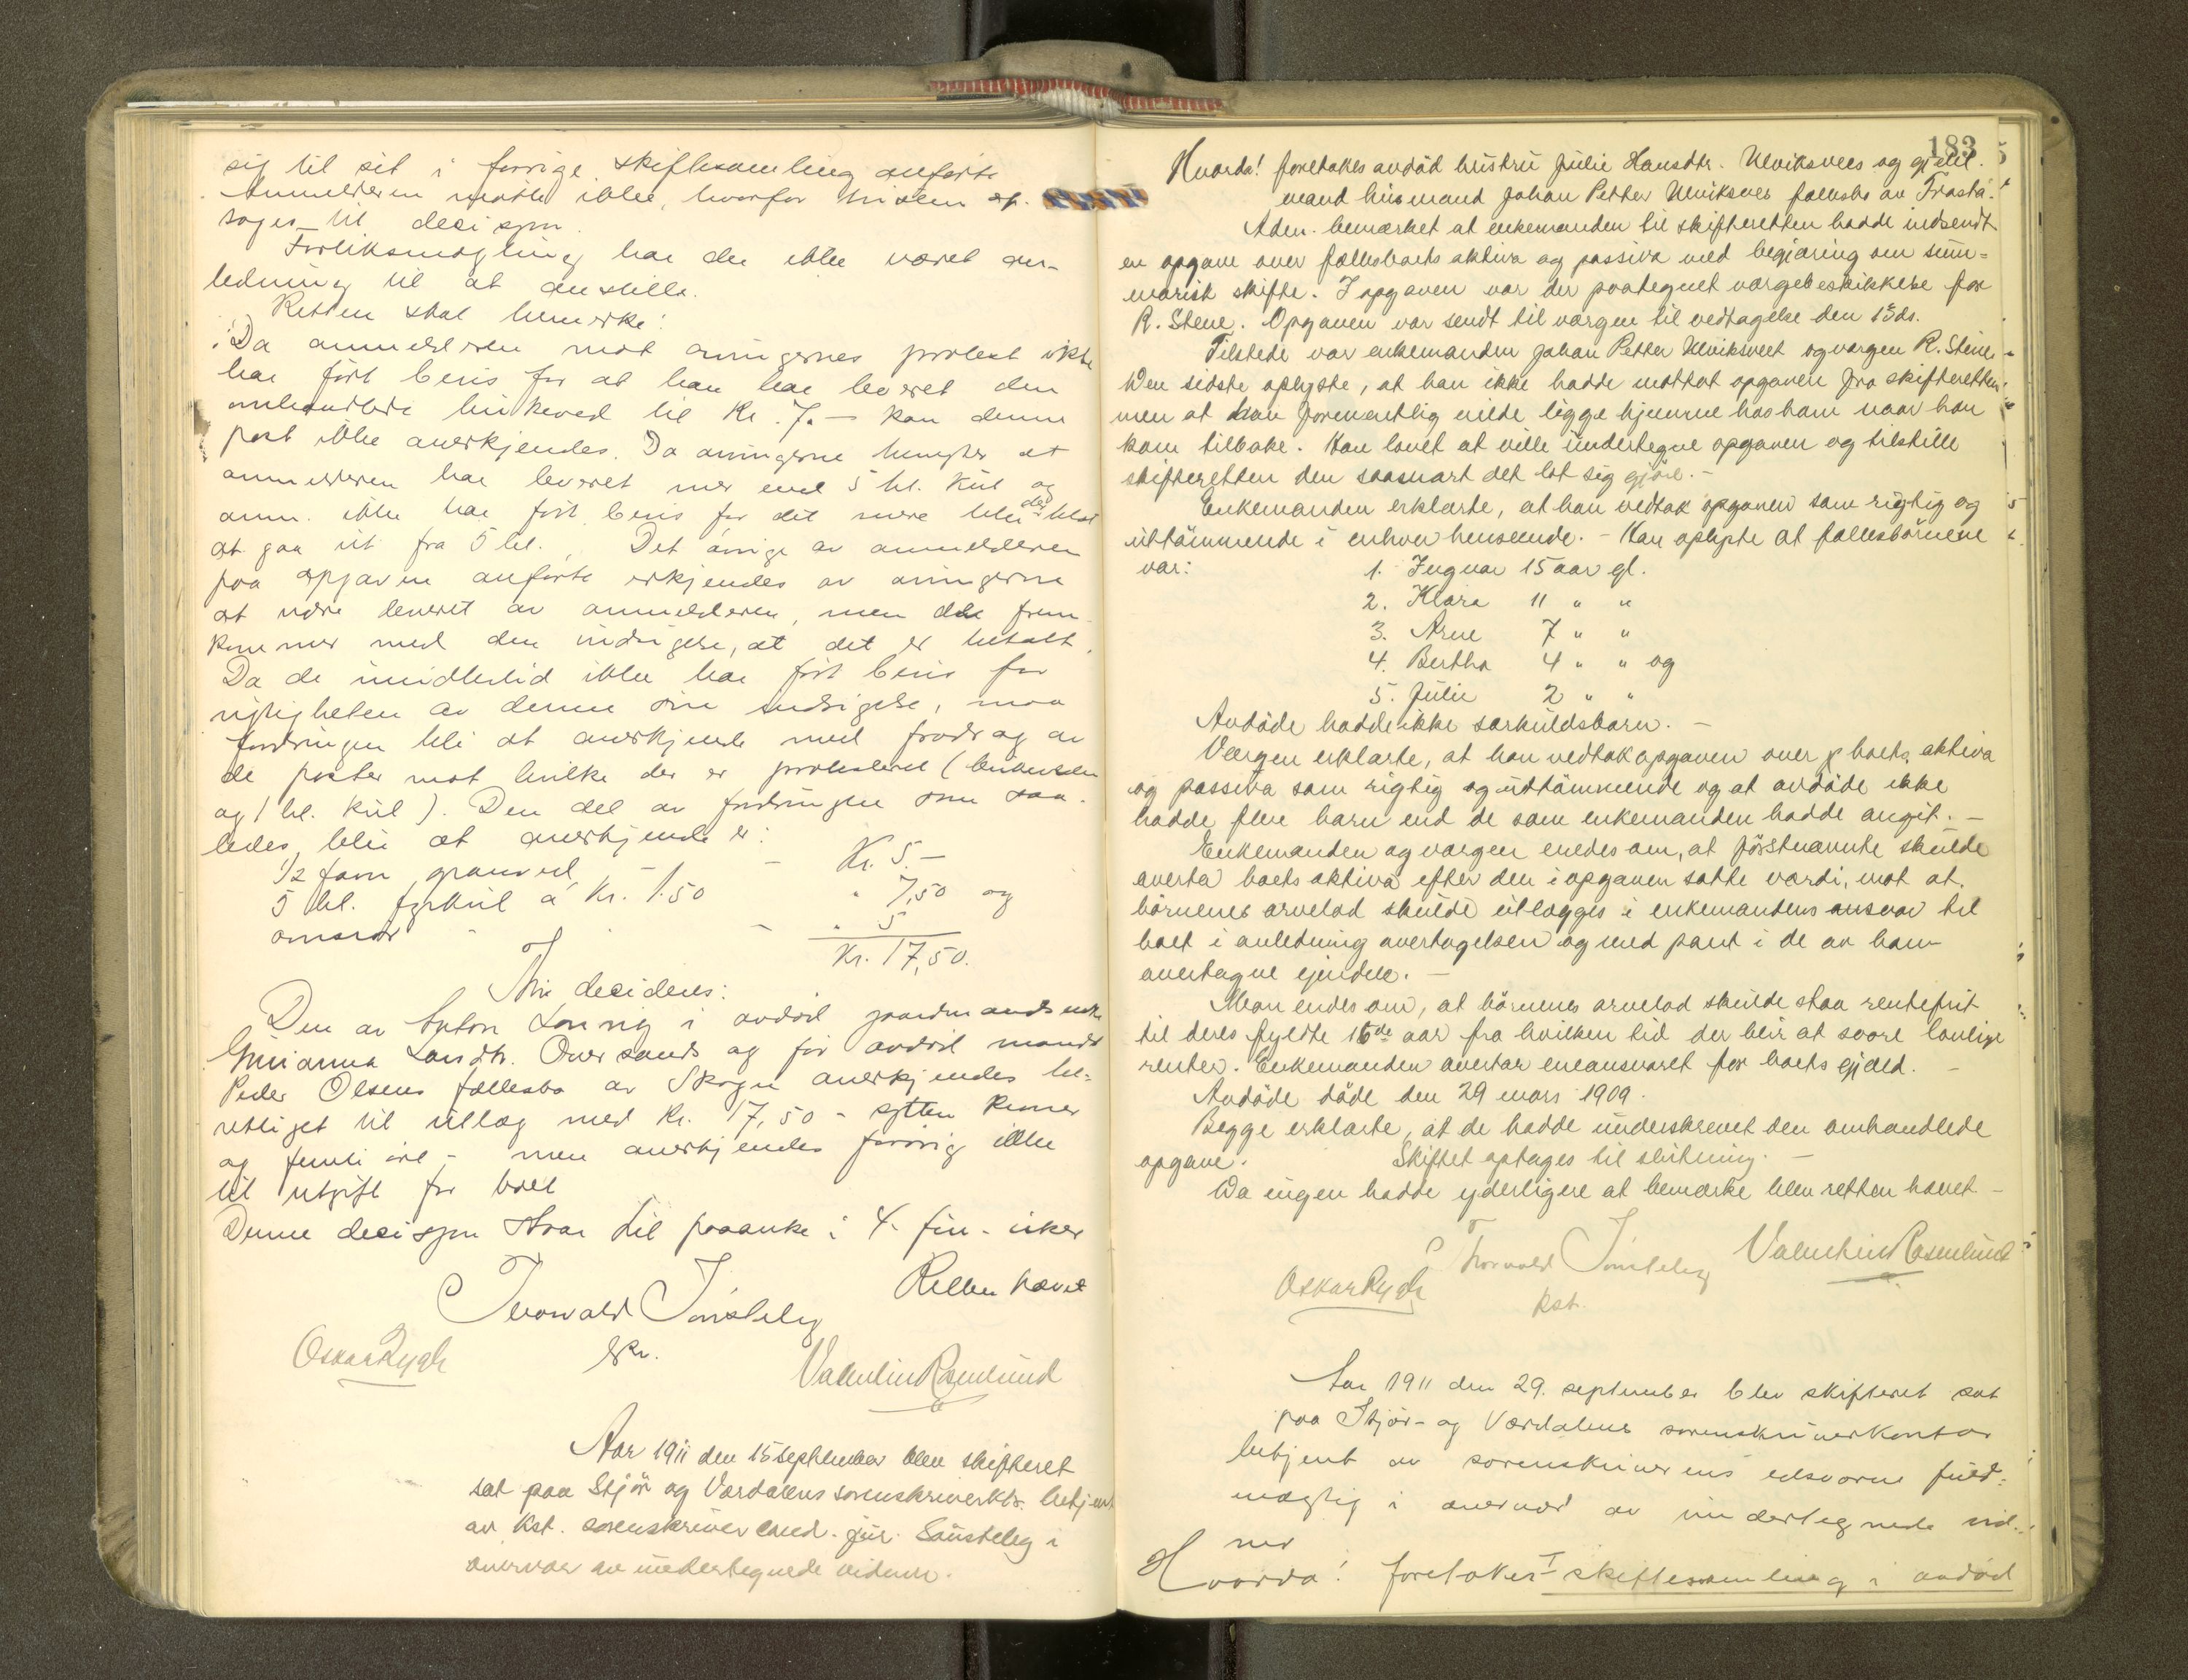 sig til sit i forrige skiftesamling anførte
Anmelderen møtte ikke, hvorfor tvisten op-
toges til decisjon.
Forliksmægling har der ikke været an-
ledning til at anstille.
Retten skal bemerke:
Da anmelderen mot arvingernes protest ikke
har ført bevis for at han har leveret den
omhandlede birkeved til Kr. 7.— kan denne
post ikke anerkjendes. Da arvingerne benegter at
anmelderen har leveret mer end 5 hl. kul og
anm. ikke har ført bevis for det mere blir det
at gaa ut fra 5 hl. Det øvrige av anmelderen
paa opgaven anførte erkjendes av arvingerne
at være leveret av anmelderen, men de frem-
kommer med den indsigelse, at det er betalt.
Da de imidlertid ikke har ført bevis for
rigtigheten av denne sin indsigelse, maa
fordringen bli at anerkjende med fradrag av
de poster mot hvilke der er protesteret (birkeveden
og 1 hl. kul). Den del av fordringen som saa-
ledes blir at anerkjende er:
1/2 favn granved — — Kr. 5.—
5 hl. fyrkul á Kr. 1.50 " 7,50 og
omsror - — " 5
Kr. 17,50.
Thi decideres:
Den av Anton Lonvig i avdød gaardmandsenke
Gurianna Larsdtr. Oversands og før avdød mands
Peder Olsens fællesbo av Skogn anerkjendes be-
rettiget til utlæg med Kr. 17,50 - sytten kroner
og femti øre - men anerkjendes forøvrig ikke
til utgift for boet
Denne decisjon staar til paaanke i 4 - fire - uker
Retten hævet
Thorvald Sønsteby
kst.
Oskar Rygh Valentin Rosenlund
Aar 1911 den 15 september blev skifteret
sat paa Stjør og Værdalens sorenskriverktr. betjent
av kst. sorenskriver cand. jur. Sønsteby i
overvær av undertegnede vidner.
183
Hvorda! foretokes avdød hustru Julie Hansdtr. Ulviksvees og gjenl.
mand husmand Johan Petter Ulviksves fællesbo av Frosta.
Adm. bemærket at enkemanden til skifteretten hadde indsendt
en opgave over fællesboets aktiva og passiva med begjæring om sum-
marisk skifte. I opgaven var der paategnet værgebeskikkelse for
R. Stene. Opgaven var sendt til værgen til vedtagelse den 13ds.
Tilstede var enkemanden Johan Petter Ulviksveet og værgen R. Stene.
Den sidste oplyste, at han ikke hadde mottat opgaven fra skifteretten
men at den formentlig vilde ligge hjemme hos ham naar han
kom tilbake. Han lovet at ville undertegne opgaven og tilstille
skifteretten den saasnart det lot sig gjøre. —
Enkemanden erklærte, at han vedtok opgaven som rigtig og
uttømmende i enhver henseende. - Han oplyste at fællesbørnene
var: 1. Ingvar 15 aar gl.
2. Klara 11 " "
3. Arne 7 " "
4. Bertha 4 " " og
5. Julie 2 " "
Avdøde hadde ikke særkuldsbarn. —
Værgen erklærte, at han vedtok opgaven over boets aktiva
og passiva som rigtig og udtømmende og at avdøde ikke
hadde flere barn end de som enkemanden hadde angit. —
Enkemanden og værgen enedes om, at førstnævnte skulde
overta boets aktiva efter den i opgaven satte værdi, mot at
børnenes arvelod skulde utlægges i enkemandens ansvar til
boet i anledning overtagelsen og med pant i de av ham
overtagne eiendele. —
Man enedes om, at børnenes arvelod skulde staa rentefrit
til deres fyldte 16de aar fra hvilken tid der blir at svare lovlige
renter. Enkemanden overtar eneansvaret for boets gjæld. —
Avdøde døde den 29 mars 1909.
Begge erklærte, at de hadde underskrevet den omhandlede
opgave. Skiftet optages til slutning. —
Da ingen hadde yderligere at bemærke blev retten hævet —
Thorvald Sønsteby Valentin Rosenlund
Oskar Rygh kst.
Aar 1911 den 29. september blev skifteret sat
paa Stjør- og Værdalens sorenskriverkontor
betjent av sorenskriverens edsvorne fuld-
mægtig i overvær av undertegnede vid-
ner
Hvorda! foretokes I skiftesamling i avdød